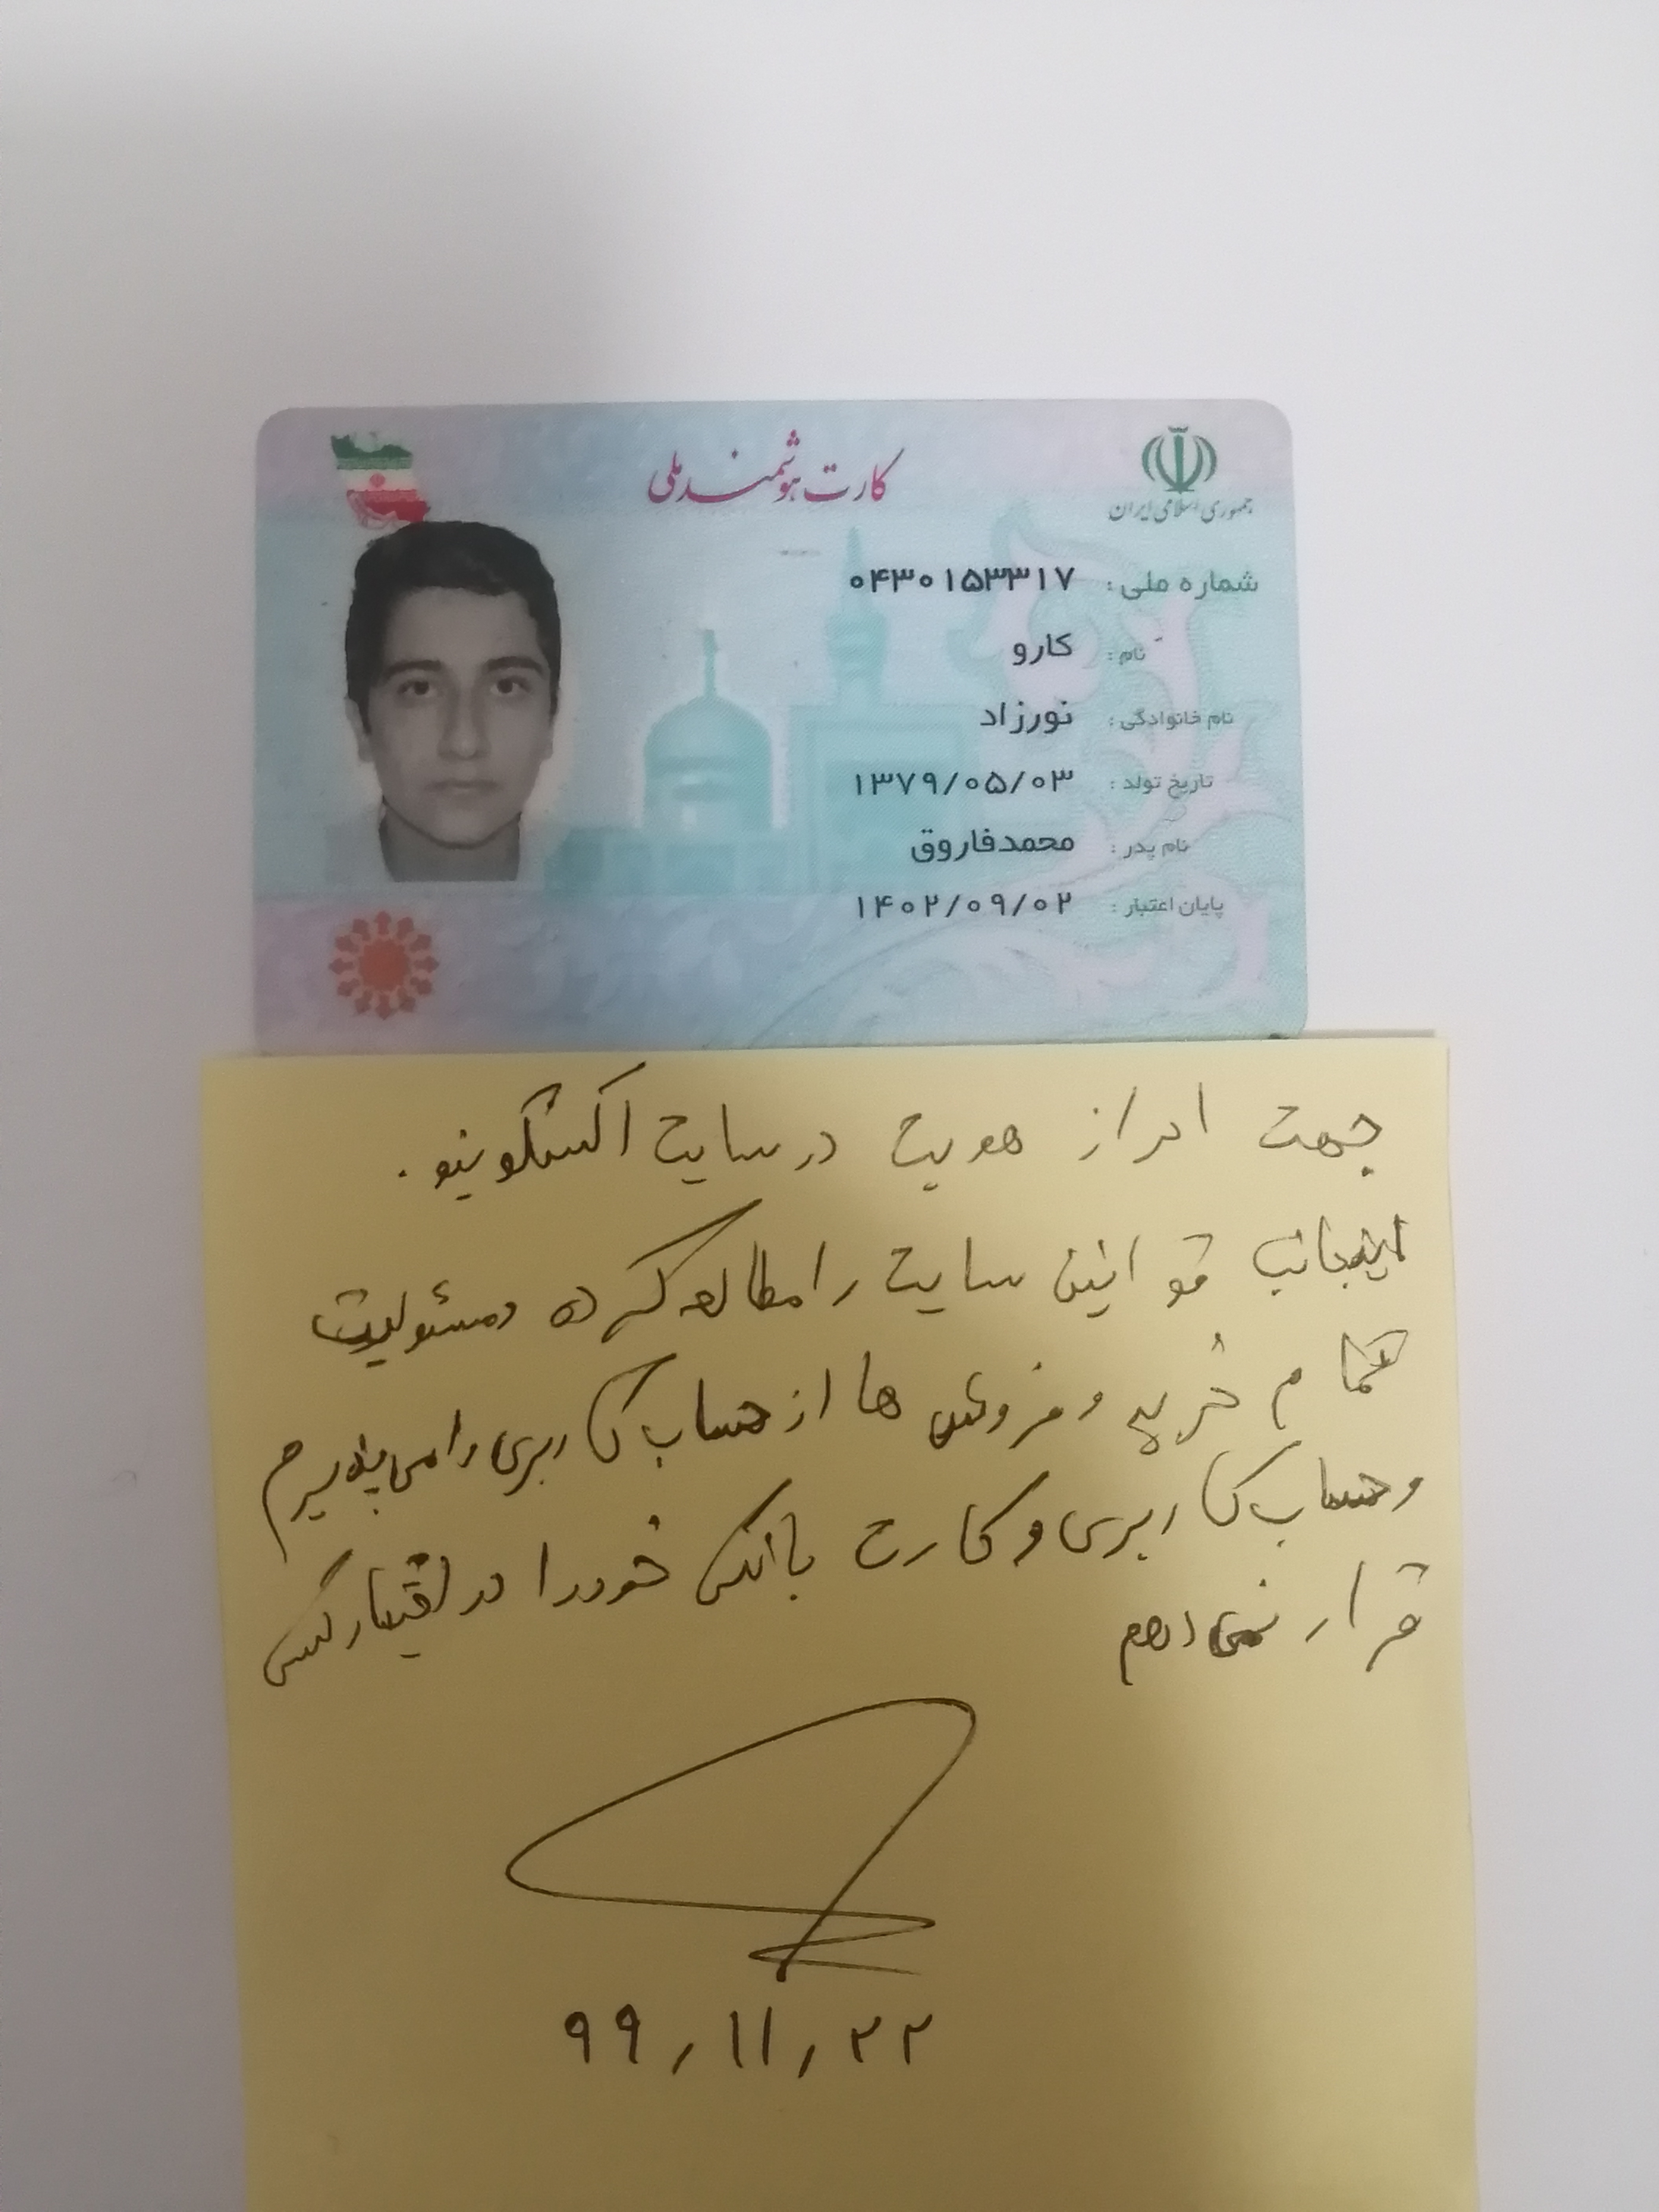 کارت هوشمند ملی
جمهوری اسلامی ایران
شماره ملی : ۰۴۳۰۱۵۳۳۱۷
نام : کارو
نام خانوادگی : نورزاد
تاریخ تولد : ۱۳۷۹/۰۵/۰۳
نام پدر : محمدفاروق
پایان اعتبار : ۱۴۰۲/۰۹/۰۲
جهت احراز هویت در سایت اکسکوینو.
اینجانب قوانین سایت را مطالعه کرده و مسئولیت
تمام خرید و فروش ها از حساب کاربری را می پذیرم
و حساب کاربری و کارت بانکی خود را در اختیار کسی
قرار نمی دهم
۹۹/۱۱/۲۲